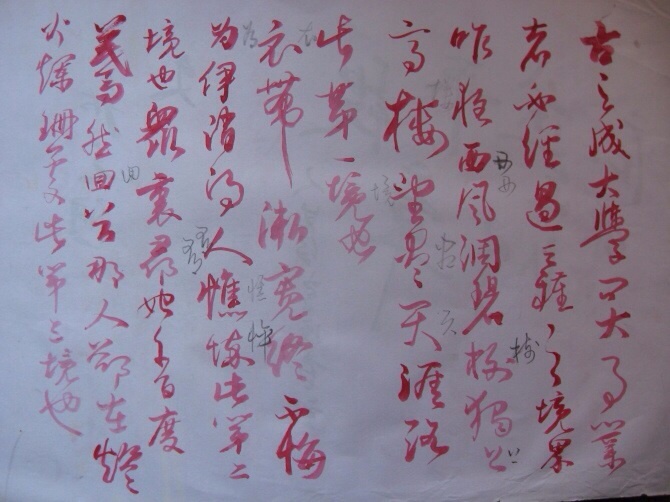 古之成大學问大事業
者必經過三種之境界
昨夜西風凋碧樹獨上
高樓望盡天涯路
此第一境也
衣帶漸寬終不悔
为伊消得人憔悴此第二
境也眾裏尋她千百度
驀然回首那人卻在燈
火爛珊處此第三境也
樹
境
衣
憔
悴
回